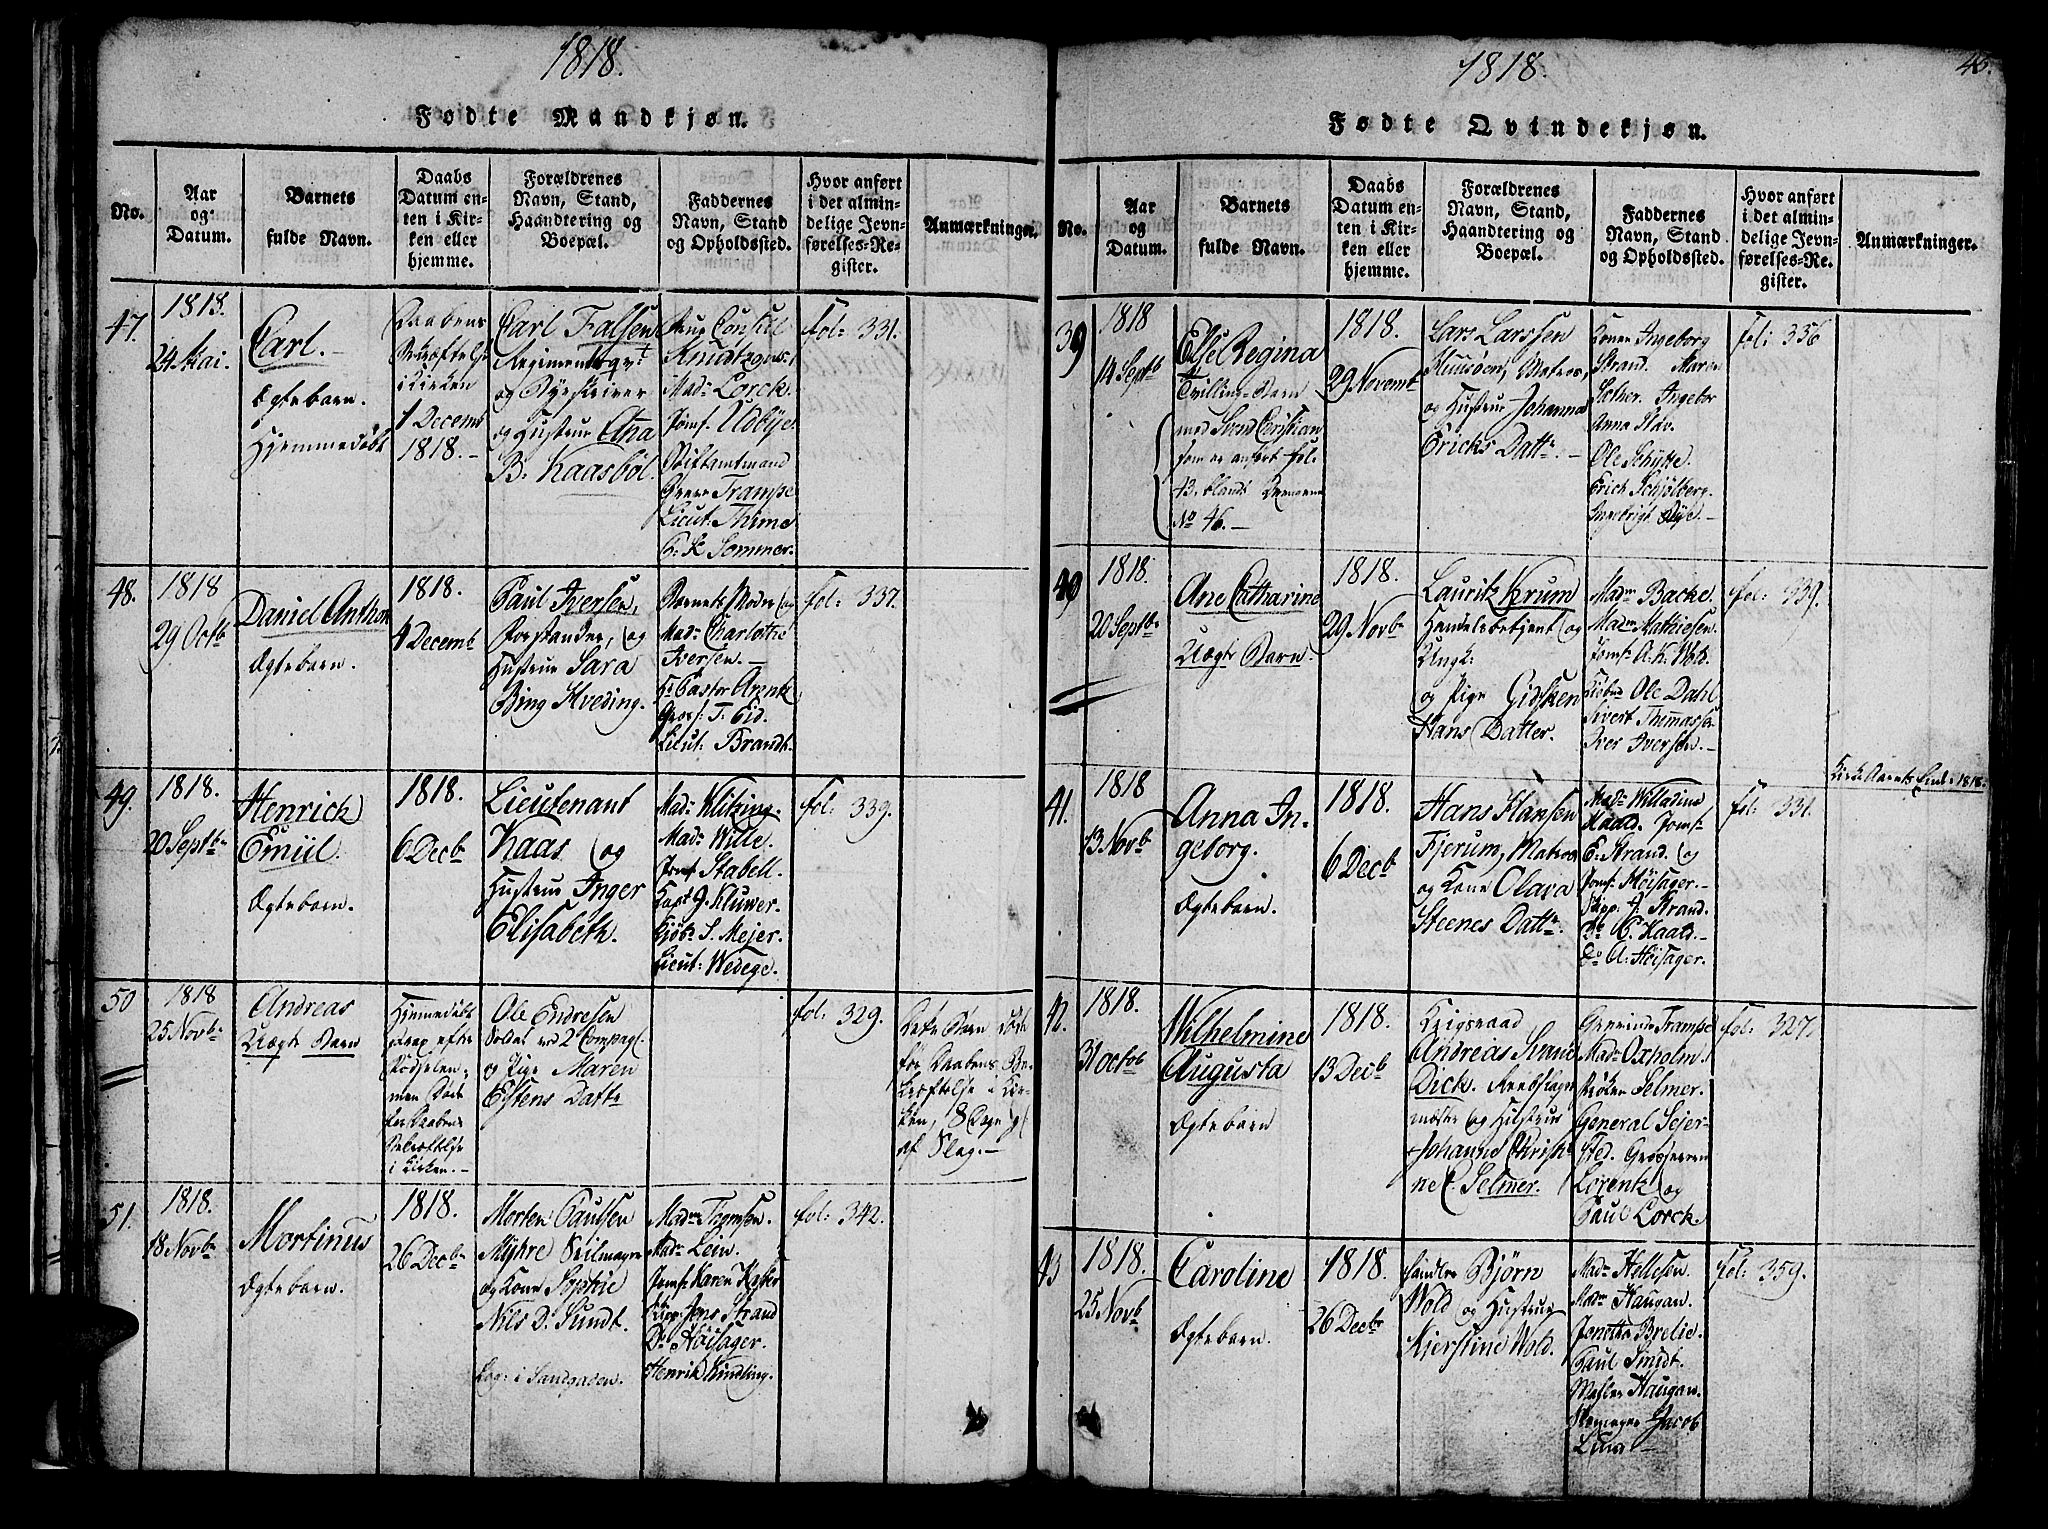 1818.
Fødte Mandkjøn.
No.
Aar
og
Datum.
Barnets
fulde Navn.
Daabs
Datum en-
ten i Kir-
ken eller
hjemme.
Forældrenes
Navn, Stand,
Haandtering og
Boepæl.
Faddernes
Navn, Stand
og Opholdssted.
Hvor anført
i det almin-
delige Jevn-
førelses-Re-
gister.
Anmærkninger.
47.
1818.
24 Mai.
Carl.
Ægtebarn.
Hjemmedøbt
Daabens
i Kirken
1 Decemb
1818.
Carl Falsen
og Byeskriver
og Hustrue Ana
B. Kaasbøl.
Consul
Knudtzon
Mad: Lorck.
Jomf. Udbye
Stiftamtmand
Greve Trampe
Lieut. Thime
Sommer.
fol: 331.
48.
1818
29 Octb
Daniel Anthon
Ægtebarn.
1818.
4 Decemb
Paul Iversen,
Forstander, og
Hustrue Sara
Bing Hveding.
Barnets Moder og
Mad: Charlotte
Iversen.
Hr Pastor Arentz
T. Eid.
Lieut: Brandt.
fol: 337.
49.
1818.
20 Septbr
Henrick
Emiil.
Ægtebarn.
1818.
6 Decb
Lieutenant
Kaas og
Hustrue Inger
Elisabeth.
Mad: Klitzing.
Mad: Wille.
Jomf Stabell.
Kapt J. Kluwer.
Kjøb: S. Mejer.
Lieut: Wedege.
fol: 339.
50
1818
25 Novbr
Andreas
Uægte Barn
Hjemmedøbt
strax efter
Fødselen,
men Døde
før Daabens
Bekræftelse
i Kirken.
Ole Endresen
Soldat ved 2 Compagl.
og Pige Maren
Estens Dattr
fol: 329.
Dette Barn døde
før Daabens Be-
kræftelse i Kir-
ken, 8 Dage gl
af Slag.
51.
1818.
18 Novbr
Mortinus
Ægtebarn.
1818.
26 Decbr
Morten Paulsen
Myhre Seilmager
og Kone Sophie
Nils D. Sundt.
Log: i Sandgaden.
Madm Tromsen.
Mad: Lein.
Jomf: Karen
Skipp: Jens Strand
Do Høisager.
Henrik Kindling.
fol: 342.
1818.
45.
Fødte Qvindekjøn.
No.
Aar
og
Datum.
Barnets
fulde Navn.
Daabs
Datum en-
ten i Kir-
ken eller
hjemme.
Forældrenes
Navn, Stand,
Haandtering og
Boepæl.
Faddernes
Navn, Stand
og Opholdssted.
Hvor anført
i det almin-
delige Jevn-
førelses-Re-
gister.
Anmærkninger.
39
1818
14 Septb
Else Regina
Tvilling-Barn
med Svend Christian
som er anført fol:
43. blandt Drengene
No 46.
1818.
29 Novemb
Lars Larssen
Matros,
og Hustrue Johanna
Ericks Dattr.
Konen Ingeborg
Strand. Maren
Sæther. Ingebor
Anna
Ole Schytte.
Erich Schjølberg.
Rye.
fol: 336
40
1818.
20 Septbr
Ane Catharine
Uægte Barn.
1818.
29 Novbr
Lauritz Krum
Handelsbetjent og
Ungk:
og Pige Gidsken
Hans Datter.
Madm Backe.
Madm Mathiesen.
Jomf: A. K. Wold.
Ole Dahl
Sivert Thomasse
Iver Iversen.
fol: 339.
Kirke Aarets Ende 1818.
41.
1818
13 Novb
Anna In-
geborg.
Ægtebarn.
1818.
6 Decb
Hans Hansen
Fjerum, Matros
og Kone Clara
Steenes Dattr.
Mad: Willadine
Kaald. Jomf:
E. Strand. og
Jomf: Høisager.
Skipp: J. Strand.
Do C. Kaald.
Do A. Høisager.
fol: 331.
42.
1818.
31 Octob
Wilhelmine
Augusta
Ægtebarn
1818.
13 Decb
Krigsraad
Andreas Svane
Dick.
mester og Hustrue
Johanne Christi-
ne P. Selmer.
Grevinde Trampe
Mad: Oxholm.
Frøken Selmer.
General Sejer-
sted. Grosserer
Lorentz og
Paul Lorck.
fol: 327.
43
1818.
25 Novb
Caroline
Ægtebarn.
1818.
26 Decbr
Handler Bjørn
Wold og Hustrue
Kierstine Wold.
Mad: Hellesen.
Madm Haugan.
Jonetta Brelie.
Paul Smidt.
Haugan.
Jacob
Lund
fol: 359.